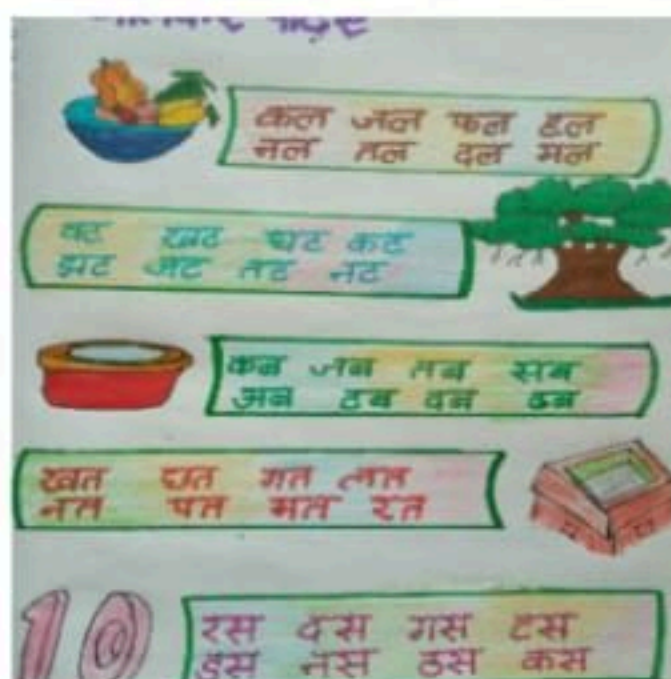 कल जल फल हल
नल तल दल मल
वट खट घट कट
झट जट तट नट
कब जब तब सब
अब टब दब ढब
खत छत गत लत
नत पत मत रत
रस दस गस टस
डस नस ठस कस